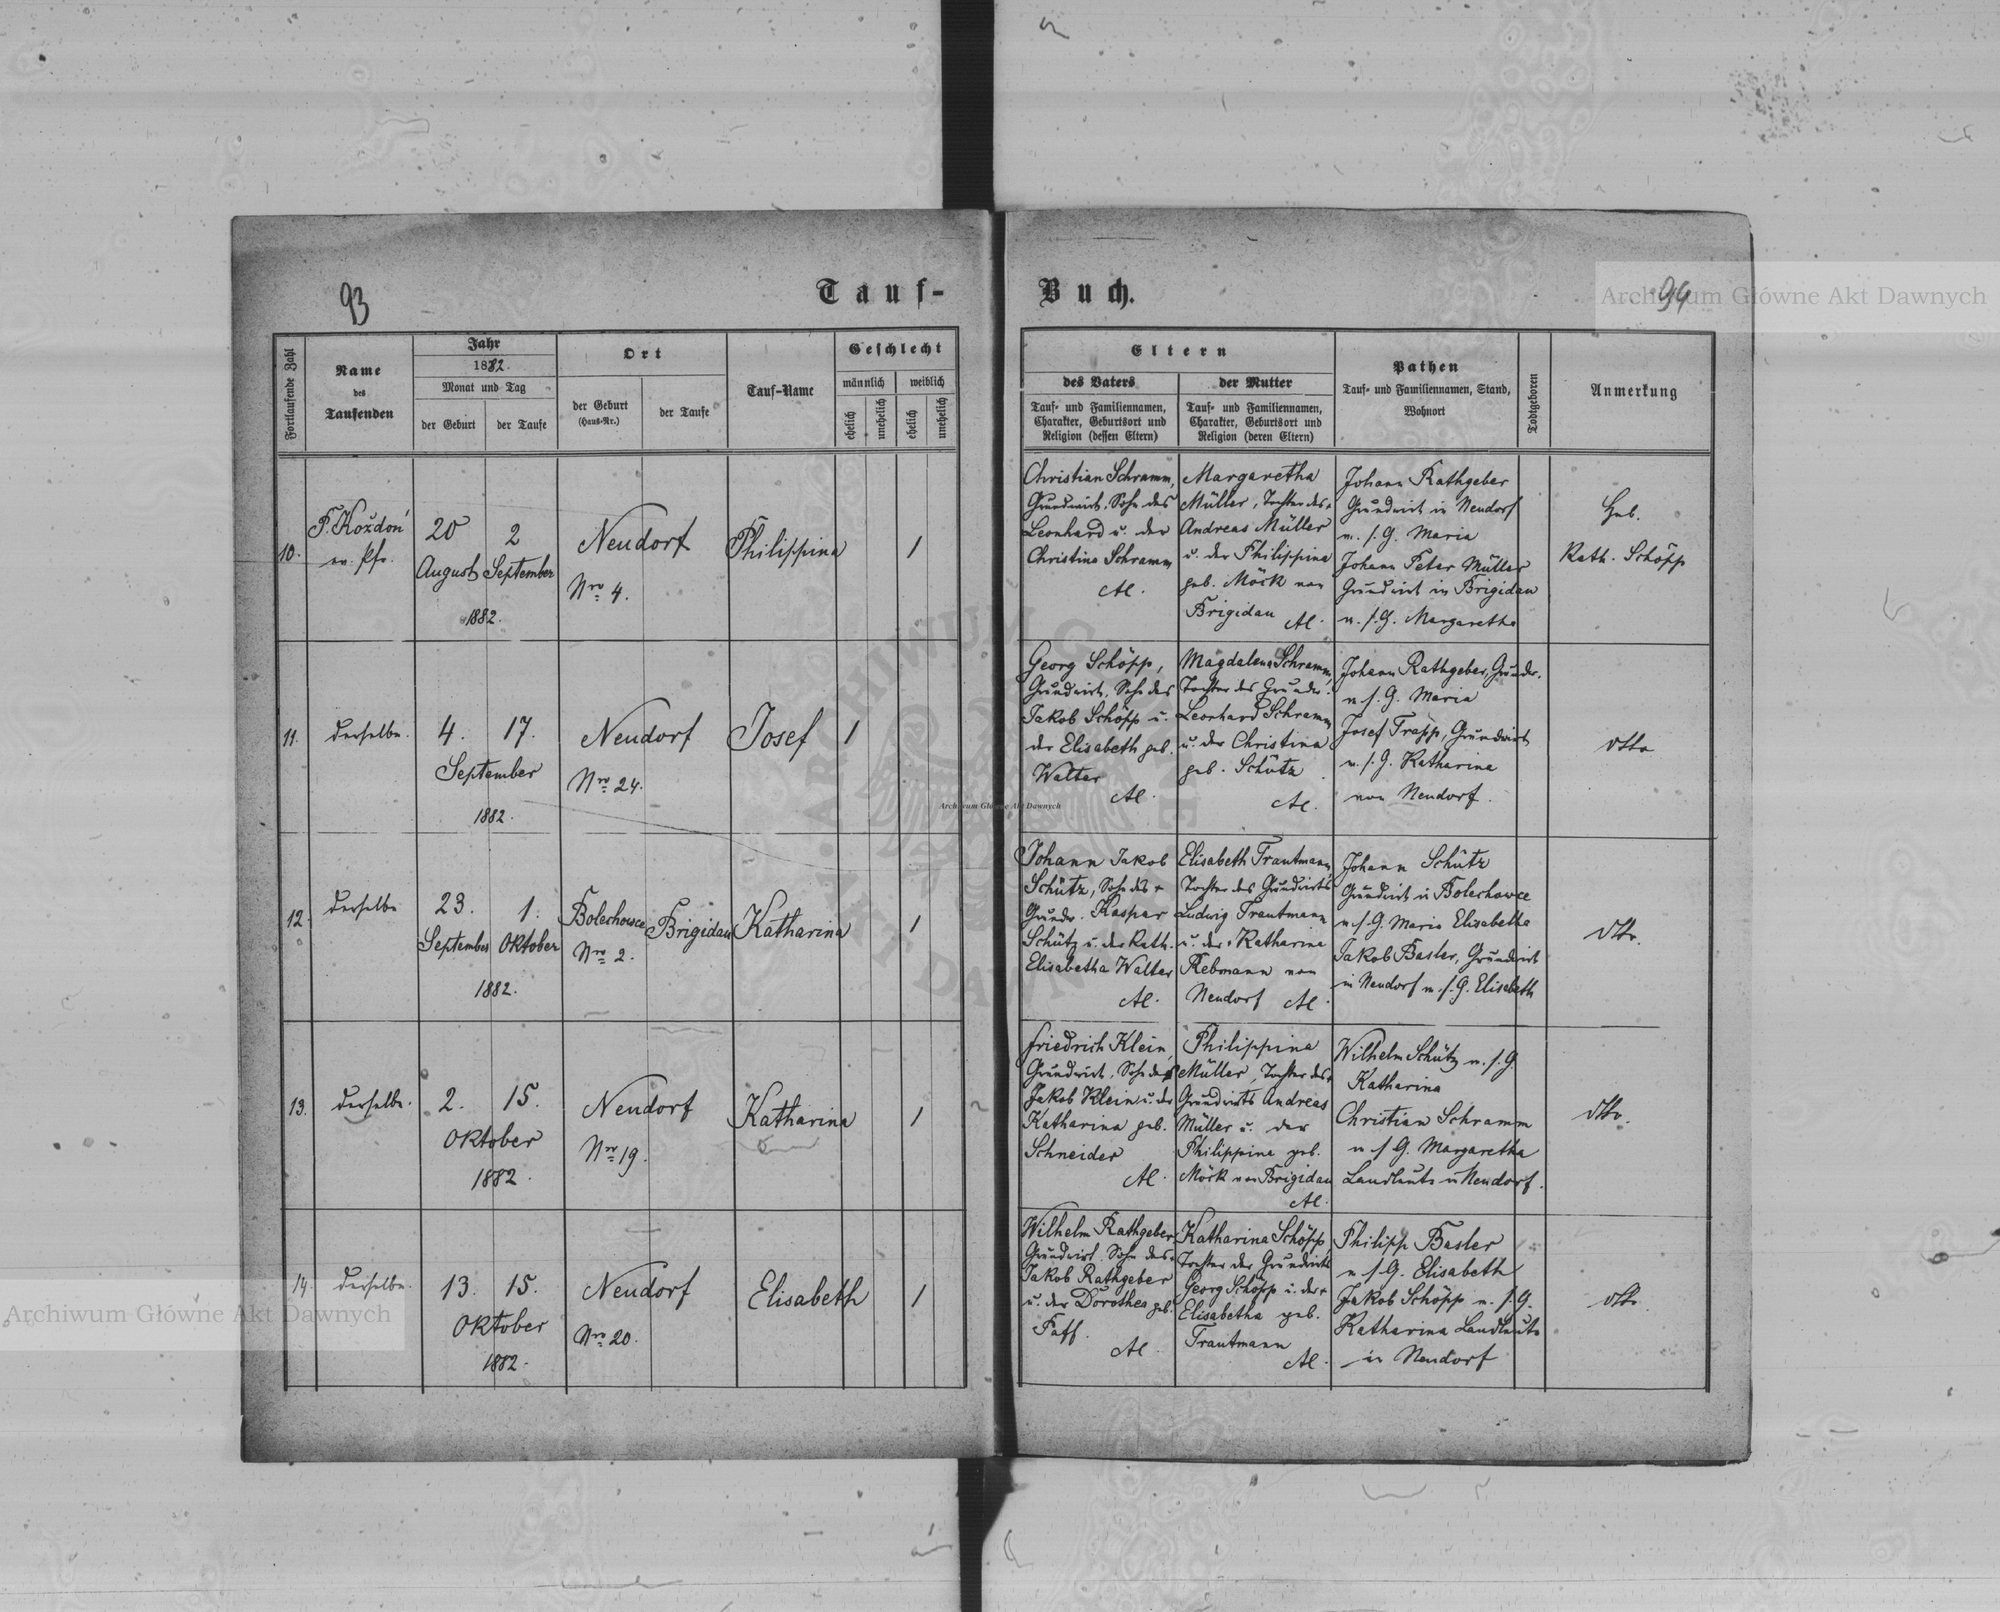 93
Tauf-
Buch.
94
Archiwum Główne Akt Dawnych
Fortlaufende Zahl
Name
des
Taufenden
Jahr
1882.
Monat und Tag
der Geburt
der Taufe
Ort
der Geburt
(Haus-Nr.)
der Taufe
Tauf-Name
Geschlecht
männlich
weiblich
ehelich
unehelich
ehelich
unehelich
Eltern
des Vaters
Tauf- und Familiennamen,
Charakter, Geburtsort und
Religion (dessen Eltern)
der Mutter
Tauf- und Familiennamen,
Charakter, Geburtsort und
Religion (deren Eltern)
Pathen
Tauf- und Familiennamen, Stand,
Wohnort
Todtgeboren
Anmerkung
10.
F. Koždoń
ev. Pfr.
20
August
2
September
1882.
Neudorf
Nro 4.
Philippina
1
Christian Schramm,
Grundwirt, Sohn des
Leonhard u. der
Christina Schramm
AC.
Margaretha
Müller, Tochter des +
Andreas Müller
u. der Philippina
geb. Möck von
Brigidau AC.
Johann Rathgeber
Grundwirt in Neudorf
u. s. G. Maria
Johann Peter Müller
Grundwirt in Brigidau
u. s. G. Margaretha
Heb.
Kath. Schöpp
11.
derselbe.
4.
17.
September
1882.
Neudorf
Nro 24.
Josef
1
Georg Schöpp,
Grundwirt, Sohn des
Jakob Schöpp u.
der Elisabeth geb.
Walter
AC.
Magdalena Schramm,
Tochter des Grundw.
Leonhard Schramm
u. der Christina
geb. Schütz
AC.
Johann Rathgeber, Grundw.
u s. G. Maria
Josef Trapp, Grundwirt
u. s. G. Katharina
von Neudorf.
dtto
12.
derselbe
23.
September
1.
Oktober
1882.
Bolechowce
Nro 2.
Brigidau
Katharina
1
Johann Jakob
Schütz, Sohn des +
Grundw. Kaspar
Schütz u. der Kath.
Elisabetha Walter
AC.
Elisabeth Trautmann
Tochter des Grundwirts
Ludwig Trautmann
u. der + Katharina
Rebmann von
Neudorf AC.
Johann Schütz
Grundwirt in Bolechowce
u s. G. Maria Elisabetha
Jakob Basler, Grundwirt
in Neudorf u. s. G. Elisabeth
dtto.
13.
derselbe.
2.
15.
Oktober
1882.
Neudorf
Nro 19.
Katharina
1
Friedrich Klein,
Grundwirt, Sohn des
Jakob Klein u. der
Katharina geb.
Schneider
AC.
Philippina
Müller, Tochter des +
Grundwirts Andreas
Müller u. der
Philippine geb.
Möck von Brigidau
AC.
Wilhelm Schütz u. s. G.
Katharina
Christian Schramm
u s. G. Margaretha
Landleute in Neudorf.
dtto.
14.
derselbe.
13.
15.
Oktober
1882.
Neudorf
Nro 20.
Elisabeth
1
Wilhelm Rathgeber
Grundwirt, Sohn des
Jakob Rathgeber
u. der Dorothea geb.
Faff.
AC.
Katharina Schöpp
Tochter des Grundwirts
Georg Schöpp u. der +
Elisabetha geb.
Trautmann
AC.
Philipp Basler
u. s. G. Elisabeth
Jakob Schöpp u. s. G.
Katharina Landleute
in Neudorf
dtto.
Archiwum Główne Akt Dawnych
Archiwum Główne Akt Dawnych